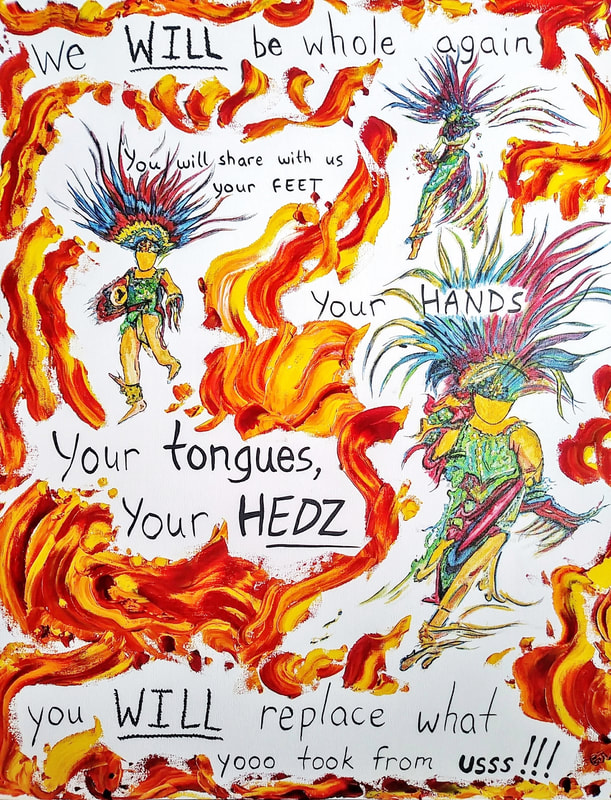 We WILL be whole again
You will share with us
your FEET
Your HANDS
Your tongues,
Your HEDZ
you WILL replace what
yooo took from usss!!!